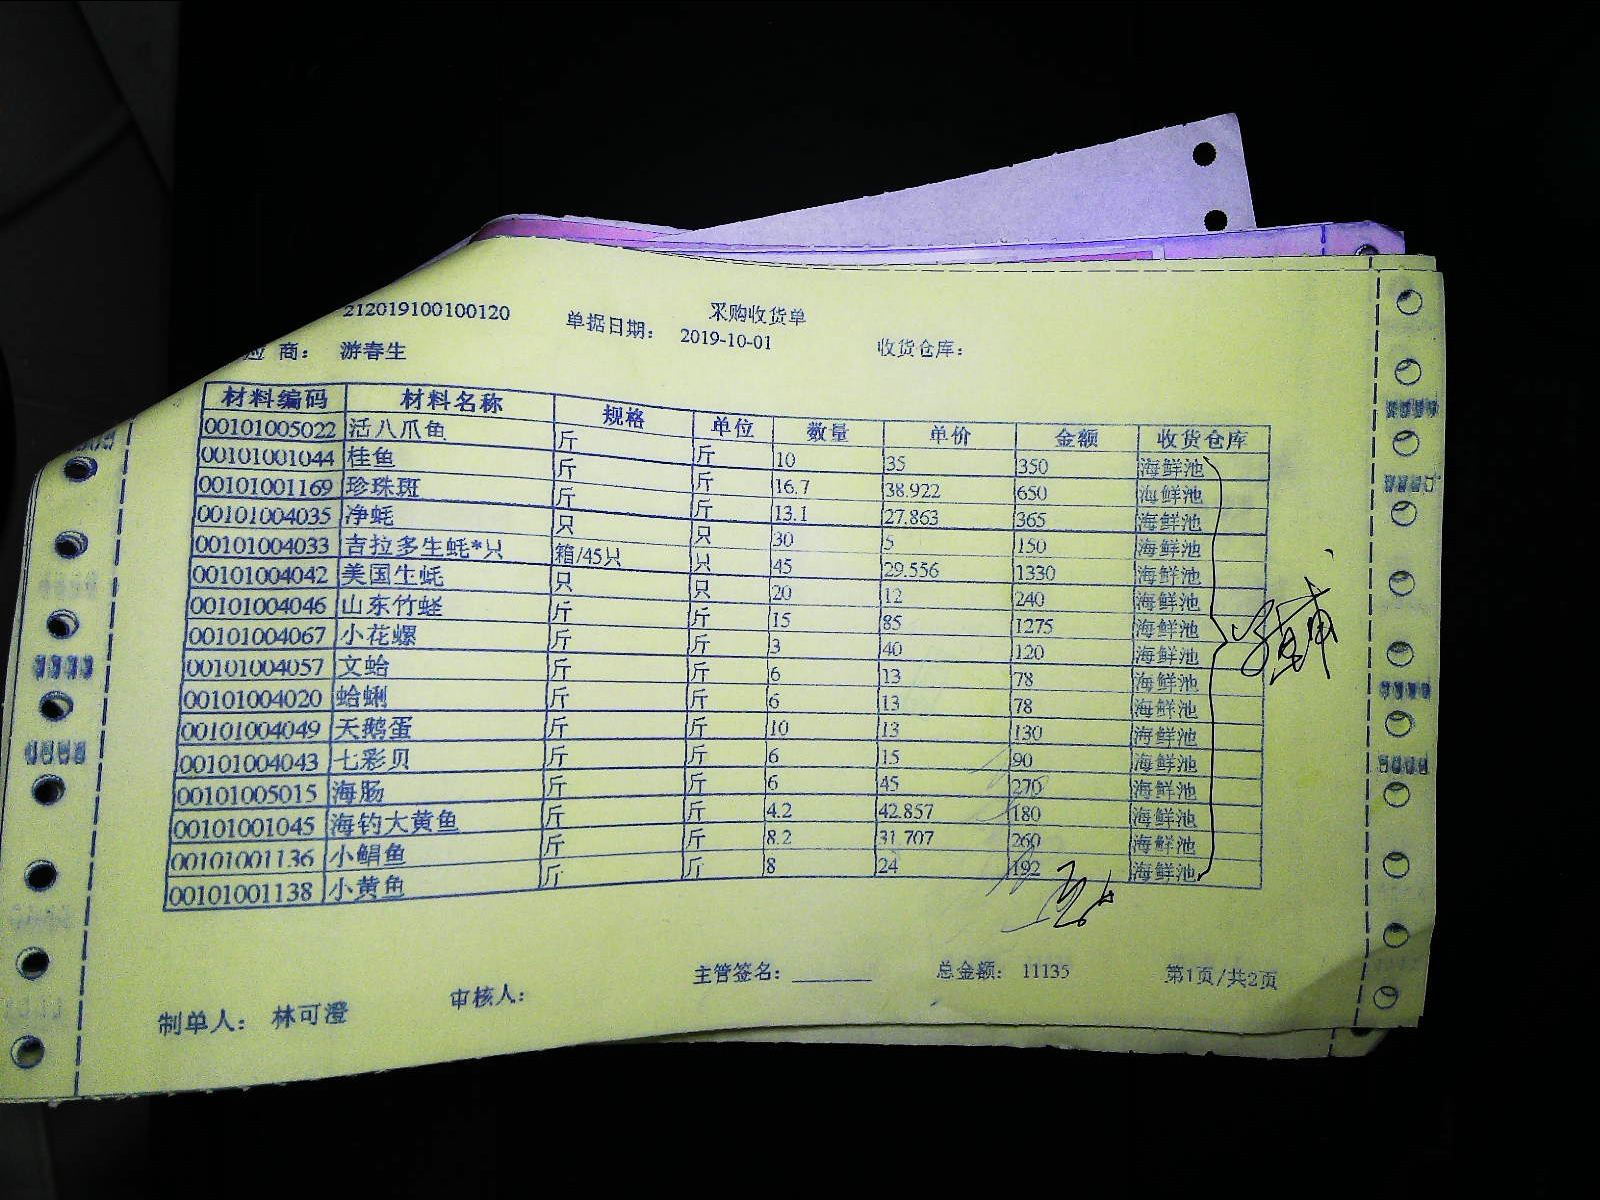 采购收货单
212019100100120 单据日期： 2019-10-01 收货仓库：
应 商： 游春生
材料编码 材料名称 规格 单位 数量 单价 金额 收货仓库
00101005022 活八爪鱼 斤 斤 10 35 350 海鲜池
00101001044 桂鱼 斤 斤 16.7 38.922 650 海鲜池
00101001169 珍珠斑 斤 斤 13.1 27.863 365 海鲜池
00101004035 净蚝 只 只 30 5 150 海鲜池
00101004033 吉拉多生蚝*只 箱/45只 只 45 29.556 1330 海鲜池
00101004042 美国生蚝 只 只 20 12 240 海鲜池
00101004046 山东竹蛏 斤 斤 15 85 1275 海鲜池
00101004067 小花螺 斤 斤 3 40 120 海鲜池
00101004057 文蛤 斤 斤 6 13 78 海鲜池
00101004020 蛤蜊 斤 斤 6 13 78 海鲜池
00101004049 天鹅蛋 斤 斤 10 13 130 海鲜池
00101004043 七彩贝 斤 斤 6 15 90 海鲜池
00101005015 海肠 斤 斤 6 45 270 海鲜池
00101001045 海钓大黄鱼 斤 斤 4.2 42.857 180 海鲜池
00101001136 小鲳鱼 斤 斤 8.2 31.707 260 海鲜池
00101001138 小黄鱼 斤 斤 8 24 192 海鲜池
主管签名： 总金额： 11135 第1页/共2页
制单人： 林可澄 审核人：